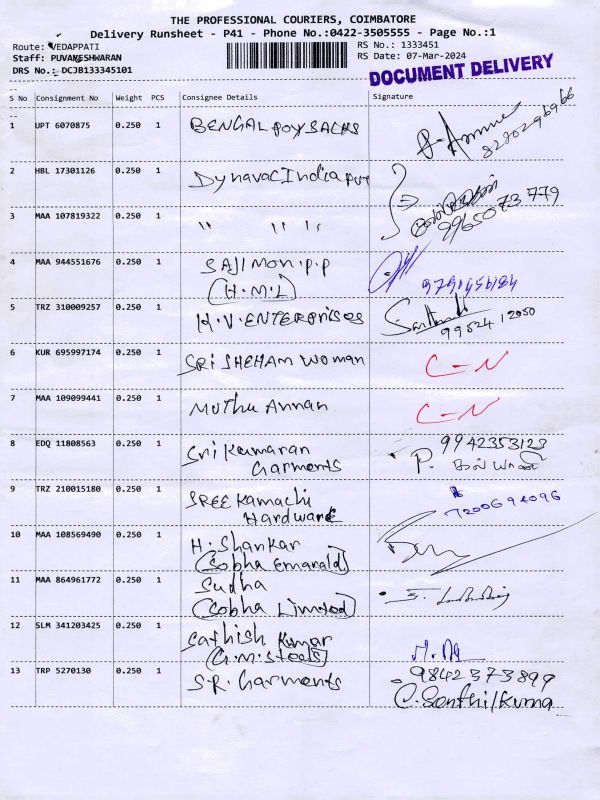 THE PROFESSIONAL COURIERS, COIMBATORE
Delivery Runsheet - P41 - Phone No.:0422-3505555 - Page No.:1
Route: VEDAPPATI
Staff: PUVANESHWARAN
DRS No.: DCJB133345101
RS No.: 1333451
RS Date: 07-Mar-2024
DOCUMENT DELIVERY
S No Consignment No Weight PCS Consignee Details Signature
1 UPT 6070875 0.250 1 BENGAL POY SACKS
8280296966
2 HBL 17301126 0.250 1 Dynavac India PVT
3 MAA 107819322 0.250 1 " " " "
9965073779
4 MAA 944551676 0.250 1 SAJI MON.P.P
(H.M.L)
5 TRZ 310009257 0.250 1 H.V.ENTERPRISES
99524 12050
6 KUR 695997174 0.250 1 SRI SHEHAM WOMAN C-N
7 MAA 109099441 0.250 1 MUTHU ANNAN C-N
8 EDQ 11808563 0.250 1 Sri Kumaran
Garments
P. 9942353123
9 TRZ 210015180 0.250 1 SREE Kamachi
Hardware
7200694096
10 MAA 108569490 0.250 1 H. Shankar
(Sobha Emarald)
11 MAA 864961772 0.250 1 Sudha
(Sobha Limited)
12 SLM 341203425 0.250 1 Sathish Kumar
(G.M.Steels)
13 TRP 5270130 0.250 1 S.R. Garments
9842373899
C. Senthil Kuma